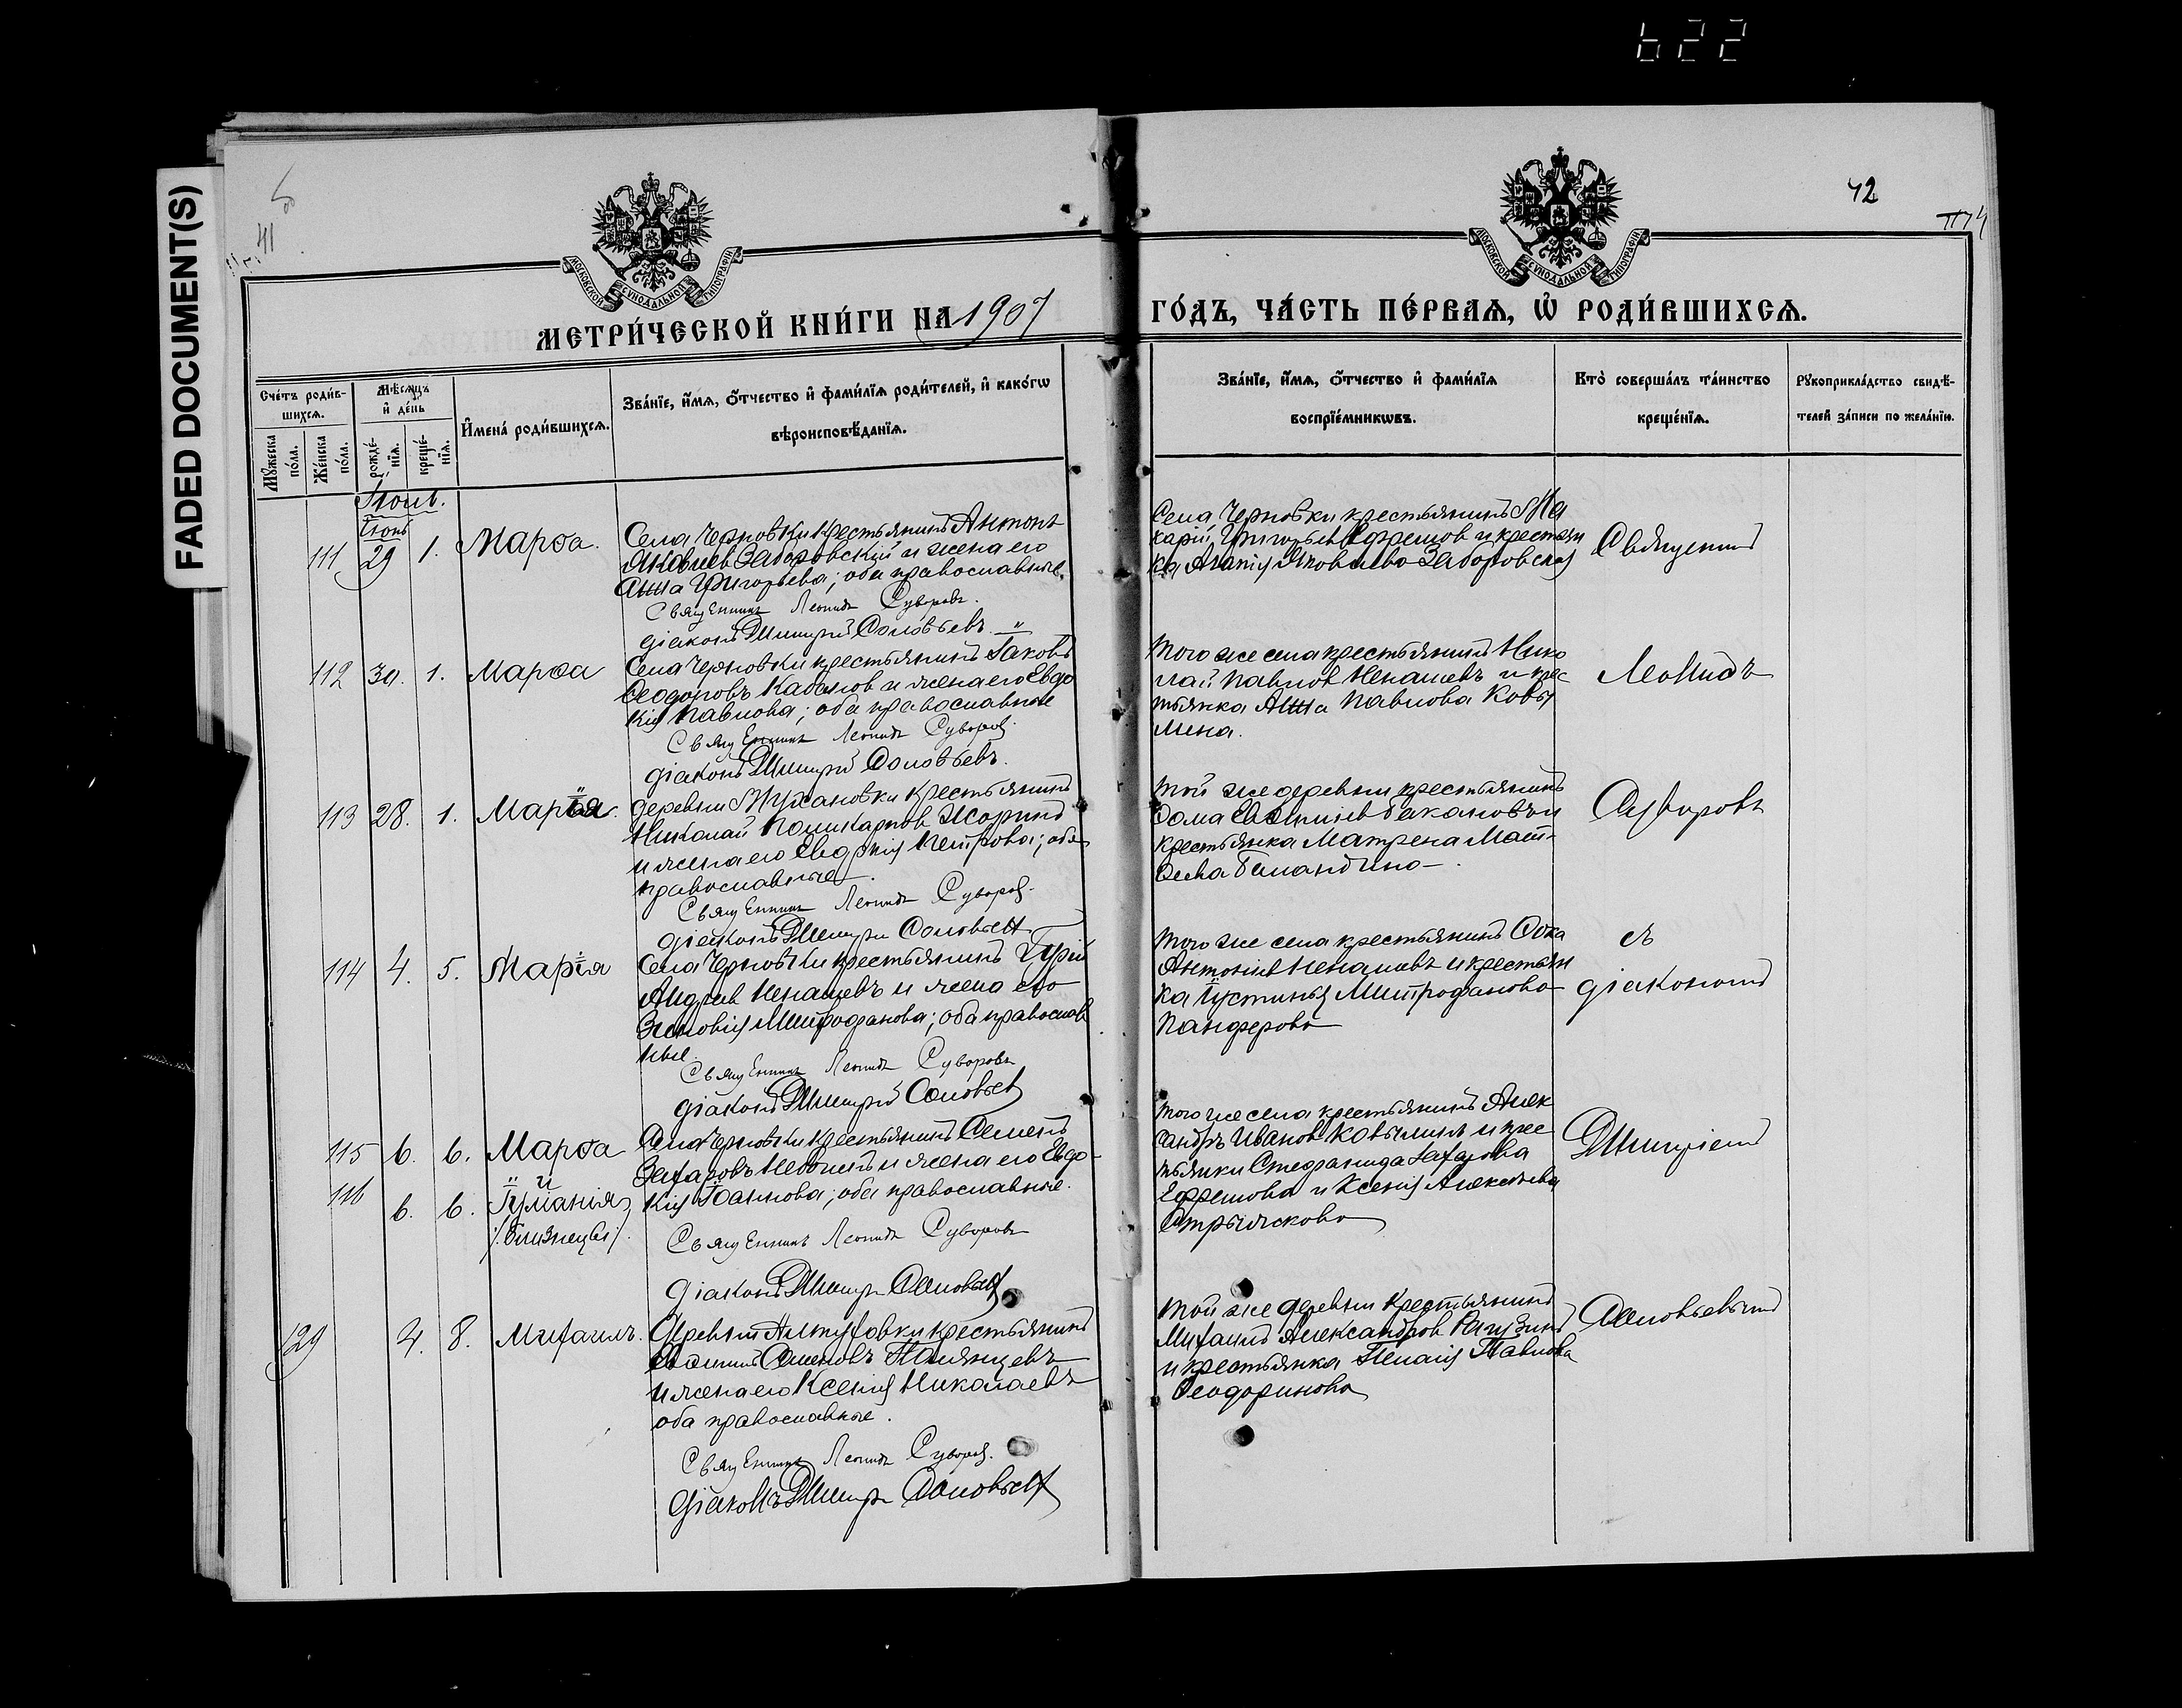 622
FADED DOCUMENT(S)
41
42
МОСКОВСКОЙ СУНОДАЛЬНОЙ ТИПОГРАФІИ
МОСКОВСКОЙ СУНОДАЛЬНОЙ ТИПОГРАФІИ
МЕТРИ́ЧЕСКОЙ КНИ́ГИ НА 1907
ГО́ДЪ, ЧА́СТЬ ПЕ́РВАѦ, Ѡ҆ РОДИ́ВШИХСѦ.
Сче́тъ роди́в-
шихсѧ.
Мꙋ́жеска по́ла.
Же́нска по́ла.
Мѣ́сѧцъ
и҆ де́нь
рожде́-
нїѧ.
креще́-
нїѧ.
И҆мена́ роди́вшихсѧ.
Зва́нїе, и҆́мѧ, ѻ҆́тчество и҆ фами́лїѧ роди́телей, и҆ како́гѡ
вѣроисповѣ́данїѧ.
Зва́нїе, и҆́мѧ, ѻ҆́тчество и҆ фами́лїѧ
воспрїе́мникѡвъ.
Кто̀ соверша́лъ та́инство
креще́нїѧ.
Рꙋкоприкла́дство свидѣ́-
телей за́писи по жела́нїю.
Іюль.
Іюнь
111 29 1. Марѳа.
Села Черновки крестьянинъ Антонъ
Яковлев Заборовский и жена его
Анна Григорьева; оба православные.
Священникъ Леонидъ Суворовъ.
Діаконъ Димитрій Соловьевъ.
Села Черновки крестьянинъ Ма
карій Григорьев Ефремов и крестьян
ка Агапія Яковлева Заборовская
Священник
112 30. 1. Марѳа
Села Черновки крестьянинъ Іаковъ
Ѳеодоровъ Кабанов и жена его Евдо
кія Павлова; оба православные
Священникъ Леонидъ Суворов.
Діаконъ Димитрій Соловьевъ.
Того же села крестьянин Нико
лай Павлов Ненашевъ и крес
тьянка Анна Павлова Ковы
лина.
Леонидъ
113 28. 1. Марія.
Деревни Мухановки крестьянинъ
Николай Поликарпов
и жена его Евдокия Петрова; оба
православные.
Священникъ Леонидъ Суворов.
Діаконъ Димитрій Соловьев
Той же деревни крестьянинъ
крестьянка Матрена Мат-
ѳеева Баландина.
Суворовъ
114 4. 5. Марія
Села Черновки крестьянинъ Гурій
Андреев Ненашевъ и жена его
Зиновія Митрофанова; оба православ
ные.
Священникъ Леонидъ Суворовъ
Діаконъ Димитрій Соловьев
Того же села крестьянинъ Ѳока
Антонов Ненашевъ и крестьян
ка Іустинія Митрофанова
Панферова
съ
діакономъ
115 6. 6. Марѳа
и
116 6. 6. Іуліанія
/близнецы/.
Села Черновки крестьянинъ Семенъ
Захаровъ и жена его Евдо-
кія Іоаннова; оба православные.
Священникъ Леонидъ Суворовъ
Діаконъ Димитрій Соловьев
Того же села крестьянинъ Алек
сандръ Иванов Ковылинъ и крес
тьянки Стефанида Захарова
Ефремова и Ксенія Алексѣева
Стрылскова
Димитріем
129 4. 8. Михаилъ.
Деревни крестьянинъ
Семеновъ
и жена его Ксенія Николаева
оба православные.
Священникъ Леонидъ Суворов.
Діаконъ Димитрій Соловьев
Той же деревни крестьянинъ
Михаилъ Александров Рагузинъ
и крестьянка Пелагія Павлова
Ѳеодоринова
Соловьевымъ